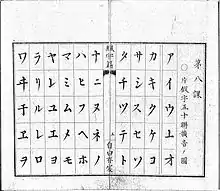 第八課
〇片假字五十聯
アイウエオ
カキクケコ
サシスセソ
タチツテト
ナニヌネノ
ハヒフヘホ
マミムメモ
ヤイユエヨ
ラリルレロ
ワヰ于ヱヲ